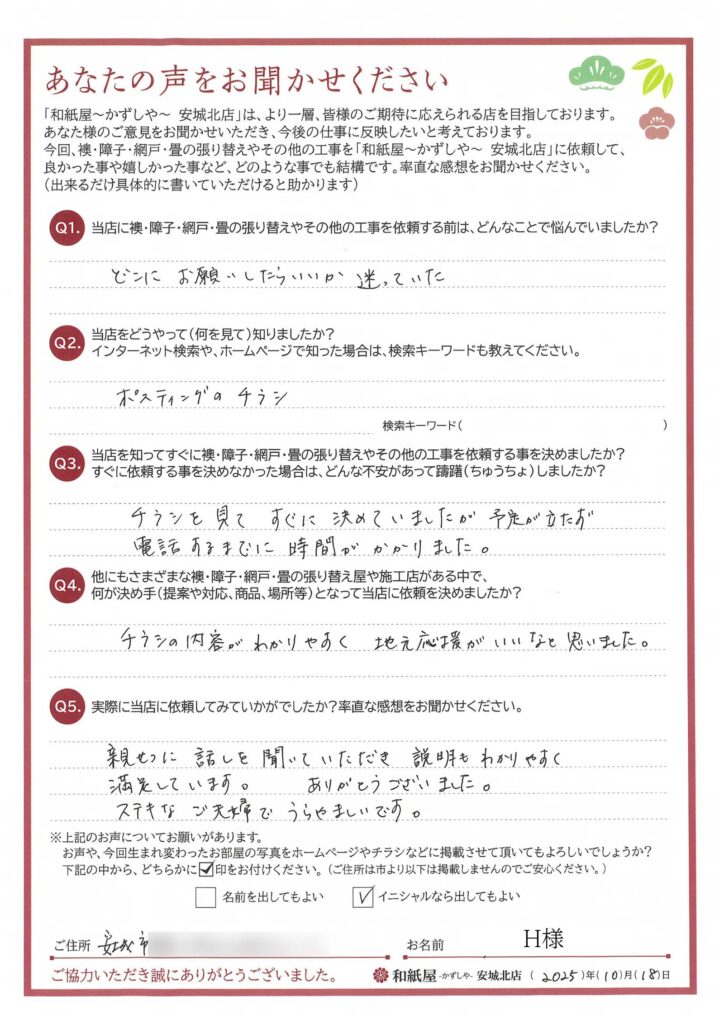 あなたの声をお聞かせください
「和紙屋～かずしや～ 安城北店」は、より一層、皆様のご期待に応えられる店を目指しております。
あなた様のご意見をお聞かせいただき、今後の仕事に反映したいと考えております。
今回、襖・障子・網戸・畳の張り替えやその他の工事を「和紙屋～かずしや～ 安城北店」に依頼して、
良かった事や嬉しかった事など、どのような事でも結構です。率直な感想をお聞かせください。
（出来るだけ具体的に書いていただけると助かります）
Q1. 当店に襖・障子・網戸・畳の張り替えやその他の工事を依頼する前は、どんなことで悩んでいましたか？
どこに お願いしたらいいか 迷っていた
Q2. 当店をどうやって（何を見て）知りましたか？
インターネット検索や、ホームページで知った場合は、検索キーワードも教えてください。
ポスティングの チラシ
検索キーワード（ ）
Q3. 当店を知ってすぐに襖・障子・網戸・畳の張り替えやその他の工事を依頼する事を決めましたか？
すぐに依頼する事を決めなかった場合は、どんな不安があって躊躇（ちゅうちょ）しましたか？
チラシを見て すぐに 決めていましたが 予定が立たず
電話するまでに 時間が かかりました。
Q4. 他にもさまざまな襖・障子・網戸・畳の張り替え屋や施工店がある中で、
何が決め手（提案や対応、商品、場所等）となって当店に依頼を決めましたか？
チラシの内容が わかりやすく 地元応援が いいなと思いました。
Q5. 実際に当店に依頼してみていかがでしたか？率直な感想をお聞かせください。
親せつに 話しを 聞いていただき 説明も わかりやすく
満足しています。 ありがとうございました。
ステキな ご夫婦で うらやましいです。
※上記のお声についてお願いがあります。
お声や、今回生まれ変わったお部屋の写真をホームページやチラシなどに掲載させて頂いてもよろしいでしょうか？
下記の中から、どちらかに☑印をお付けください。（ご住所は市より以下は掲載しませんのでご安心ください。）
□ 名前を出してもよい ☑ イニシャルなら出してもよい
ご住所 安城市 お名前 H様
ご協力いただき誠にありがとうございました。 和紙屋 -かずしや- 安城北店 （ 2025 ）年（ 10 ）月（ 18 ）日